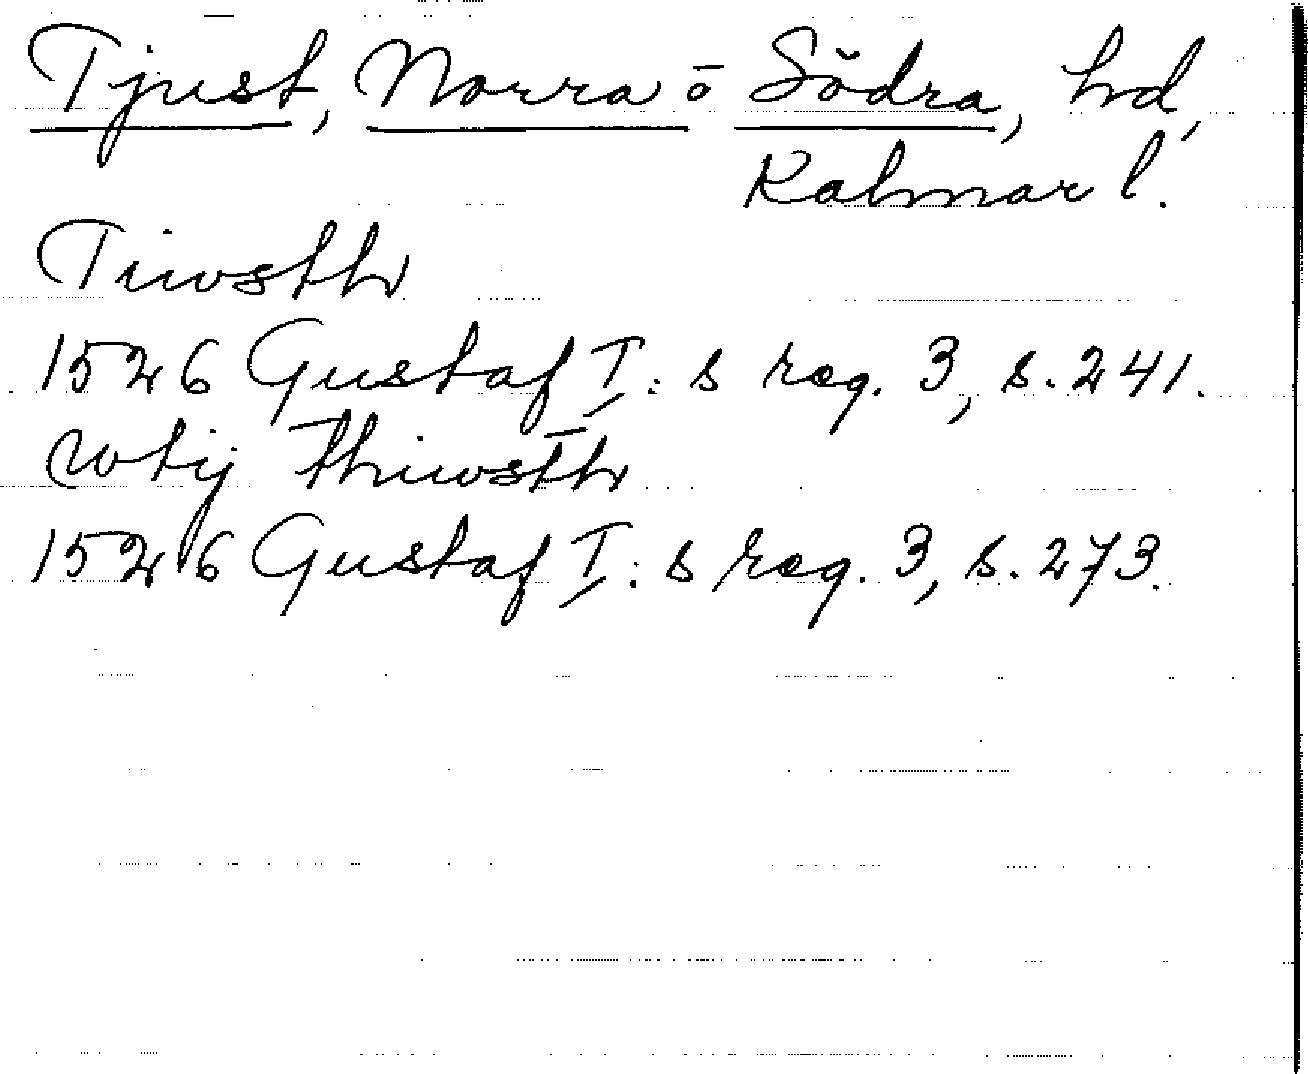 Tjust, Norra o Södra, hd,
Kalmar l.
Tiwsth
1526 Gustaf I: s reg. 3, s. 241.
wtij Thiwsth
1526 Gustaf I: s reg. 3, s. 273.